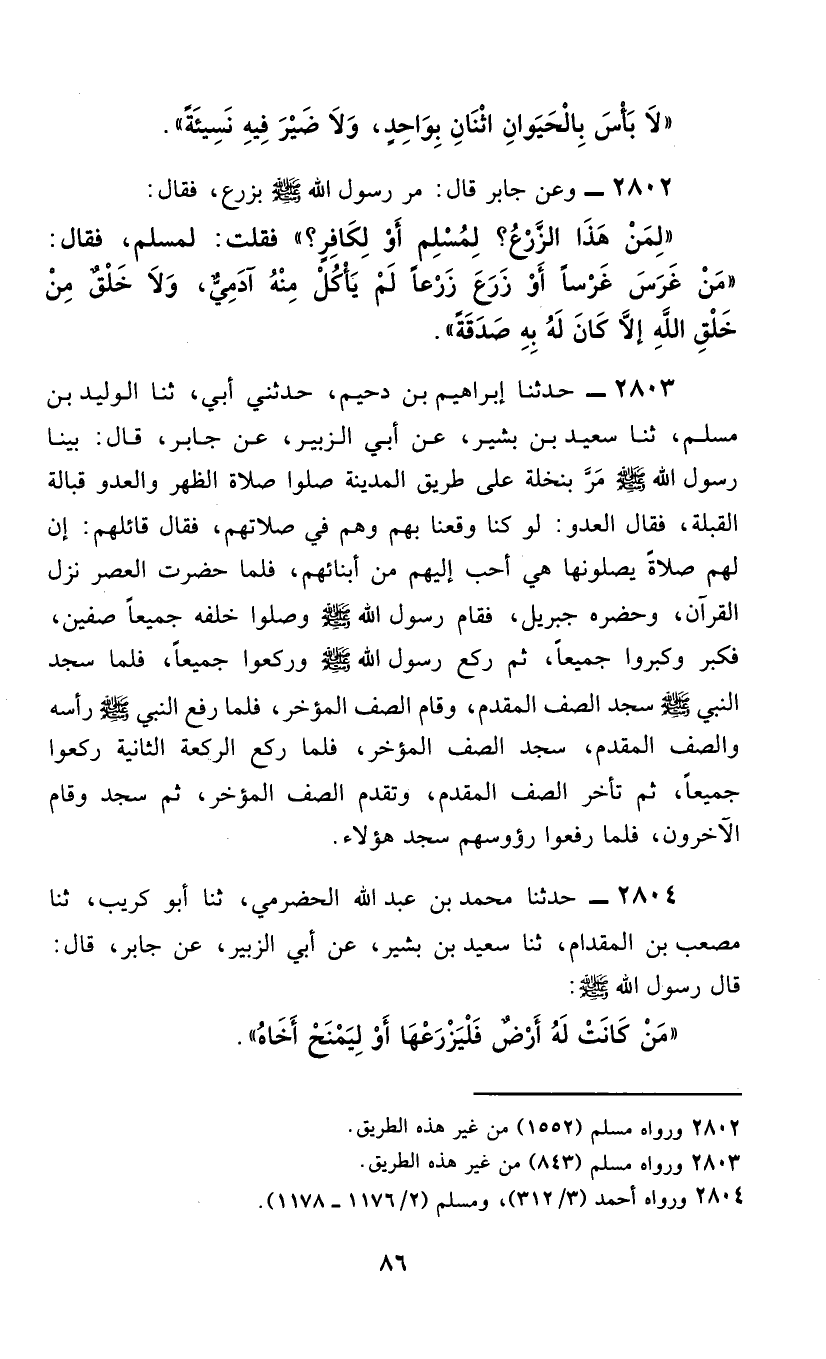 «لاَ بَأْسَ بِالْحَيَوانِ اثْنَانِ بِوَاحِدٍ، وَلاَ ضَيْرَ فِيهِ نَسِيئَةً».
٢٨٠٢ ـ وعن جابر قال: مر رسول الله ﷺ بزرع، فقال:
«لِمَنْ هَذَا الزَّرْعُ؟ لِمُسْلِمٍ أَوْ لِكَافِرٍ؟» فقلت: لمسلم، فقال:
«مَنْ غَرَسَ غَرْساً أَوْ زَرَعَ زَرْعاً لَمْ يَأْكُلْ مِنْهُ آدَمِيٌّ، وَلاَ خَلْقٌ مِنْ
خَلْقِ اللَّهِ إلاَّ كَانَ لَهُ بِهِ صَدَقَةً».
٢٨٠٣ ـ حدثنا إبراهيم بن دحيم، حدثني أبي، ثنا الوليد بن
مسلم، ثنا سعيد بن بشير، عن أبي الزبير، عن جابر، قال: بينا
رسول الله ﷺ مَرَّ بنخلة على طريق المدينة صلوا صلاة الظهر والعدو قبالة
القبلة، فقال العدو: لو كنا وقعنا بهم وهم في صلاتهم، فقال قائلهم: إن
لهم صلاةً يصلونها هي أحب إليهم من أبنائهم، فلما حضرت العصر نزل
القرآن، وحضره جبريل، فقام رسول الله ﷺ وصلوا خلفه جميعاً صفين،
فكبر وكبروا جميعاً، ثم ركع رسول الله ﷺ وركعوا جميعاً، فلما سجد
النبي ﷺ سجد الصف المقدم، وقام الصف المؤخر، فلما رفع النبي ﷺ رأسه
والصف المقدم، سجد الصف المؤخر، فلما ركع الركعة الثانية ركعوا
جميعاً، ثم تأخر الصف المقدم، وتقدم الصف المؤخر، ثم سجد وقام
الآخرون، فلما رفعوا رؤوسهم سجد هؤلاء.
٢٨٠٤ ـ حدثنا محمد بن عبد الله الحضرمي، ثنا أبو كريب، ثنا
مصعب بن المقدام، ثنا سعيد بن بشير، عن أبي الزبير، عن جابر، قال:
قال رسول الله ﷺ:
«مَنْ كَانَتْ لَهُ أَرْضٌ فَلْيَزْرَعْهَا أَوْ لِيَمْنَحْ أَخَاهُ».
٢٨٠٢ ورواه مسلم (١٥٥٢) من غير هذه الطريق.
٢٨٠٣ ورواه مسلم (٨٤٣) من غير هذه الطريق.
٢٨٠٤ ورواه أحمد (٣/ ٣١٢)، ومسلم (٢/ ١١٧٦ ـ ١١٧٨).
٨٦